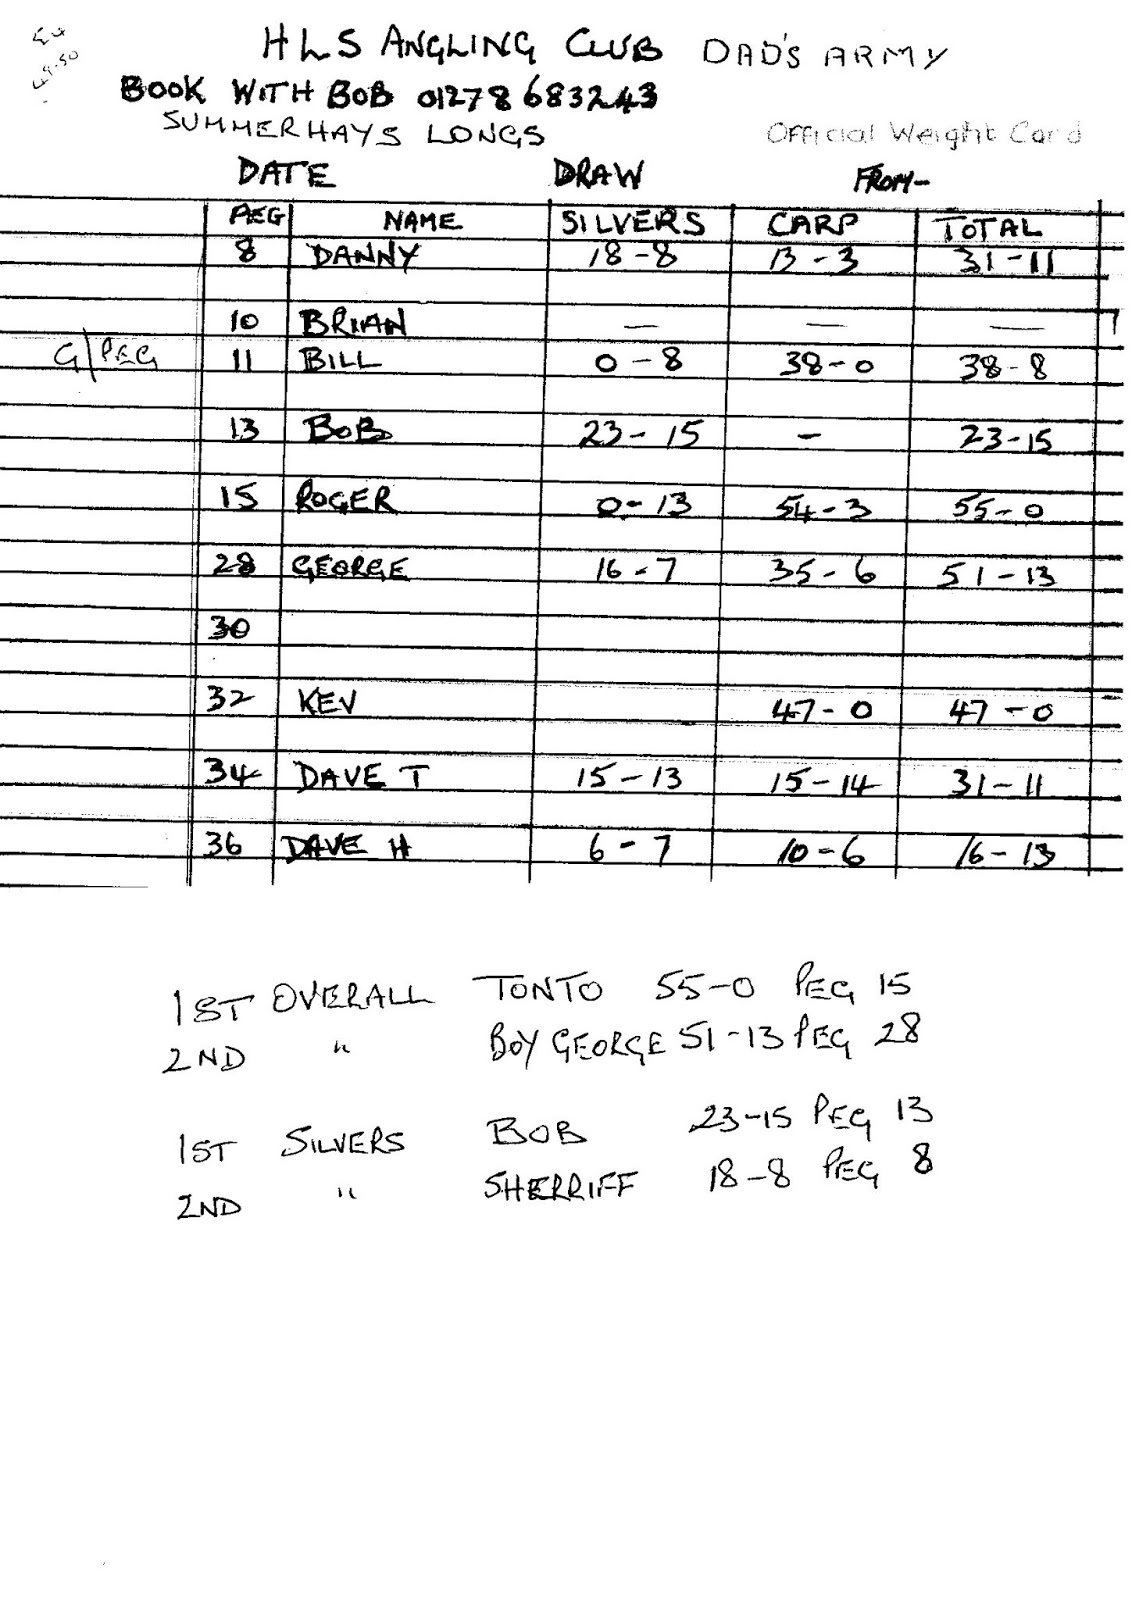 £4
49.50
HLS ANGLING CLUB DAD'S ARMY
BOOK WITH BOB 01278 683243
SUMMERHAYS LONGS
Official Weight Card
DATE DRAW FROM-
PEG NAME SILVERS CARP TOTAL
8 DANNY 18-8 13-3 31-11
10 BRIAN — — —
G/PEG 11 BILL 0-8 38-0 38-8
13 BOB 23-15 - 23-15
15 ROGER 0-13 54-3 55-0
28 GEORGE 16-7 35-6 51-13
30
32 KEV 47-0 47-0
34 DAVE T 15-13 15-14 31-11
36 DAVE H 6-7 10-6 16-13
1ST OVERALL TONTO 55-0 PEG 15
2ND " BOY GEORGE 51-13 PEG 28
1ST SILVERS BOB 23-15 PEG 13
2ND " SHERRIFF 18-8 PEG 8